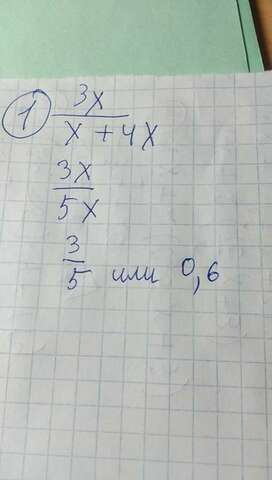 ① 3x / x + 4x
3x / 5x
3/5 или 0,6